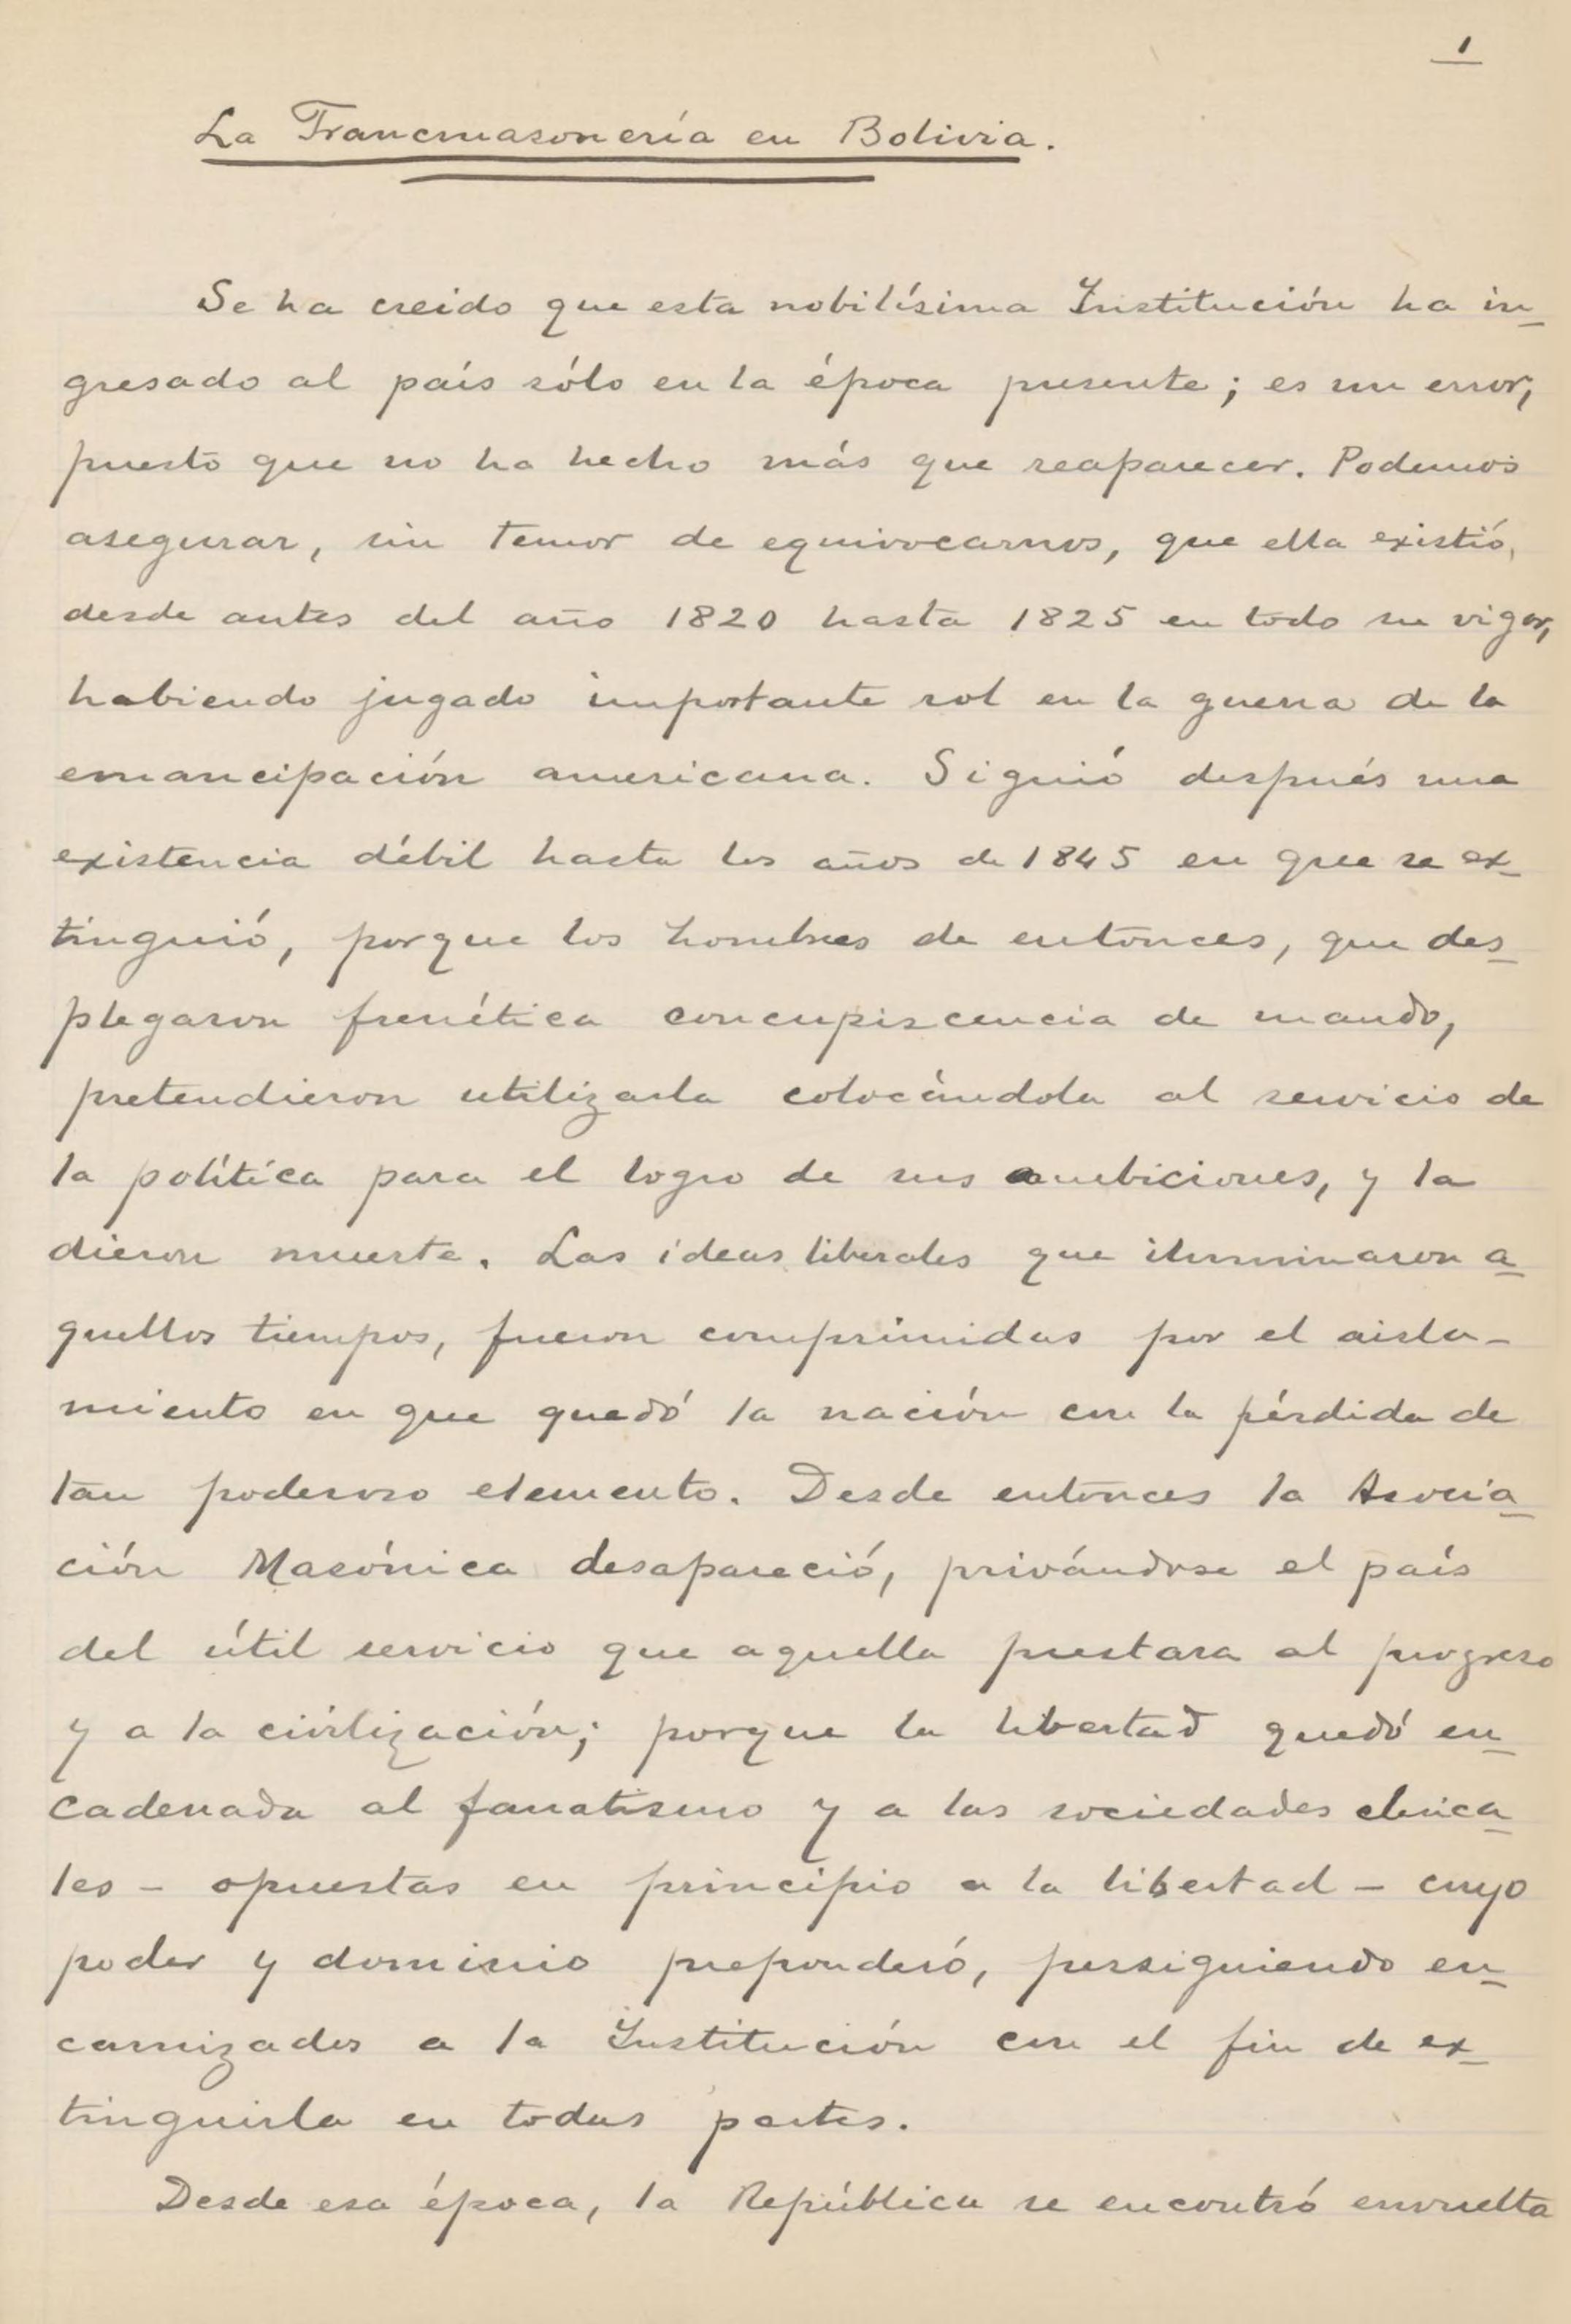 1
La Francmasonería en Bolivia.
Se ha creido que esta nobilísima Institución ha in-
gresado al país sólo en la época presente; es un error,
puesto que no ha hecho más que reaparecer. Podemos
asegurar, sin temor de equivocarnos, que ella existió,
desde antes del año 1820 hasta 1825 en todo su vigor,
habiendo jugado importante rol en la guerra de la
emancipación americana. Siguió después una
existencia débil hasta los años de 1845 en que se ex-
tinguió, porque los hombres de entonces, que des-
plegaron frenética concupiscencia de mando,
pretendieron utilizarla colocándola al servicio de
la política para el logro de sus ambiciones, y la
dieron muerte. Las ideas liberales que iluminaron a-
quellos tiempos, fueron comprimidas por el aisla-
miento en que quedó la nación con la pérdida de
tan poderoso elemento. Desde entonces la Asocia-
ción Masónica desapareció, privándose el país
del útil servicio que aquella prestara al progreso
y a la civilización; porque la libertad quedó en-
cadenada al fanatismo y a las sociedades clerica-
les - opuestas en principio a la libertad - cuyo
poder y dominio preponderó, persiguiendo en-
carnizados a la Institución con el fin de ex-
tinguirla en todas partes.
Desde esa época, la República se encontró envuelta